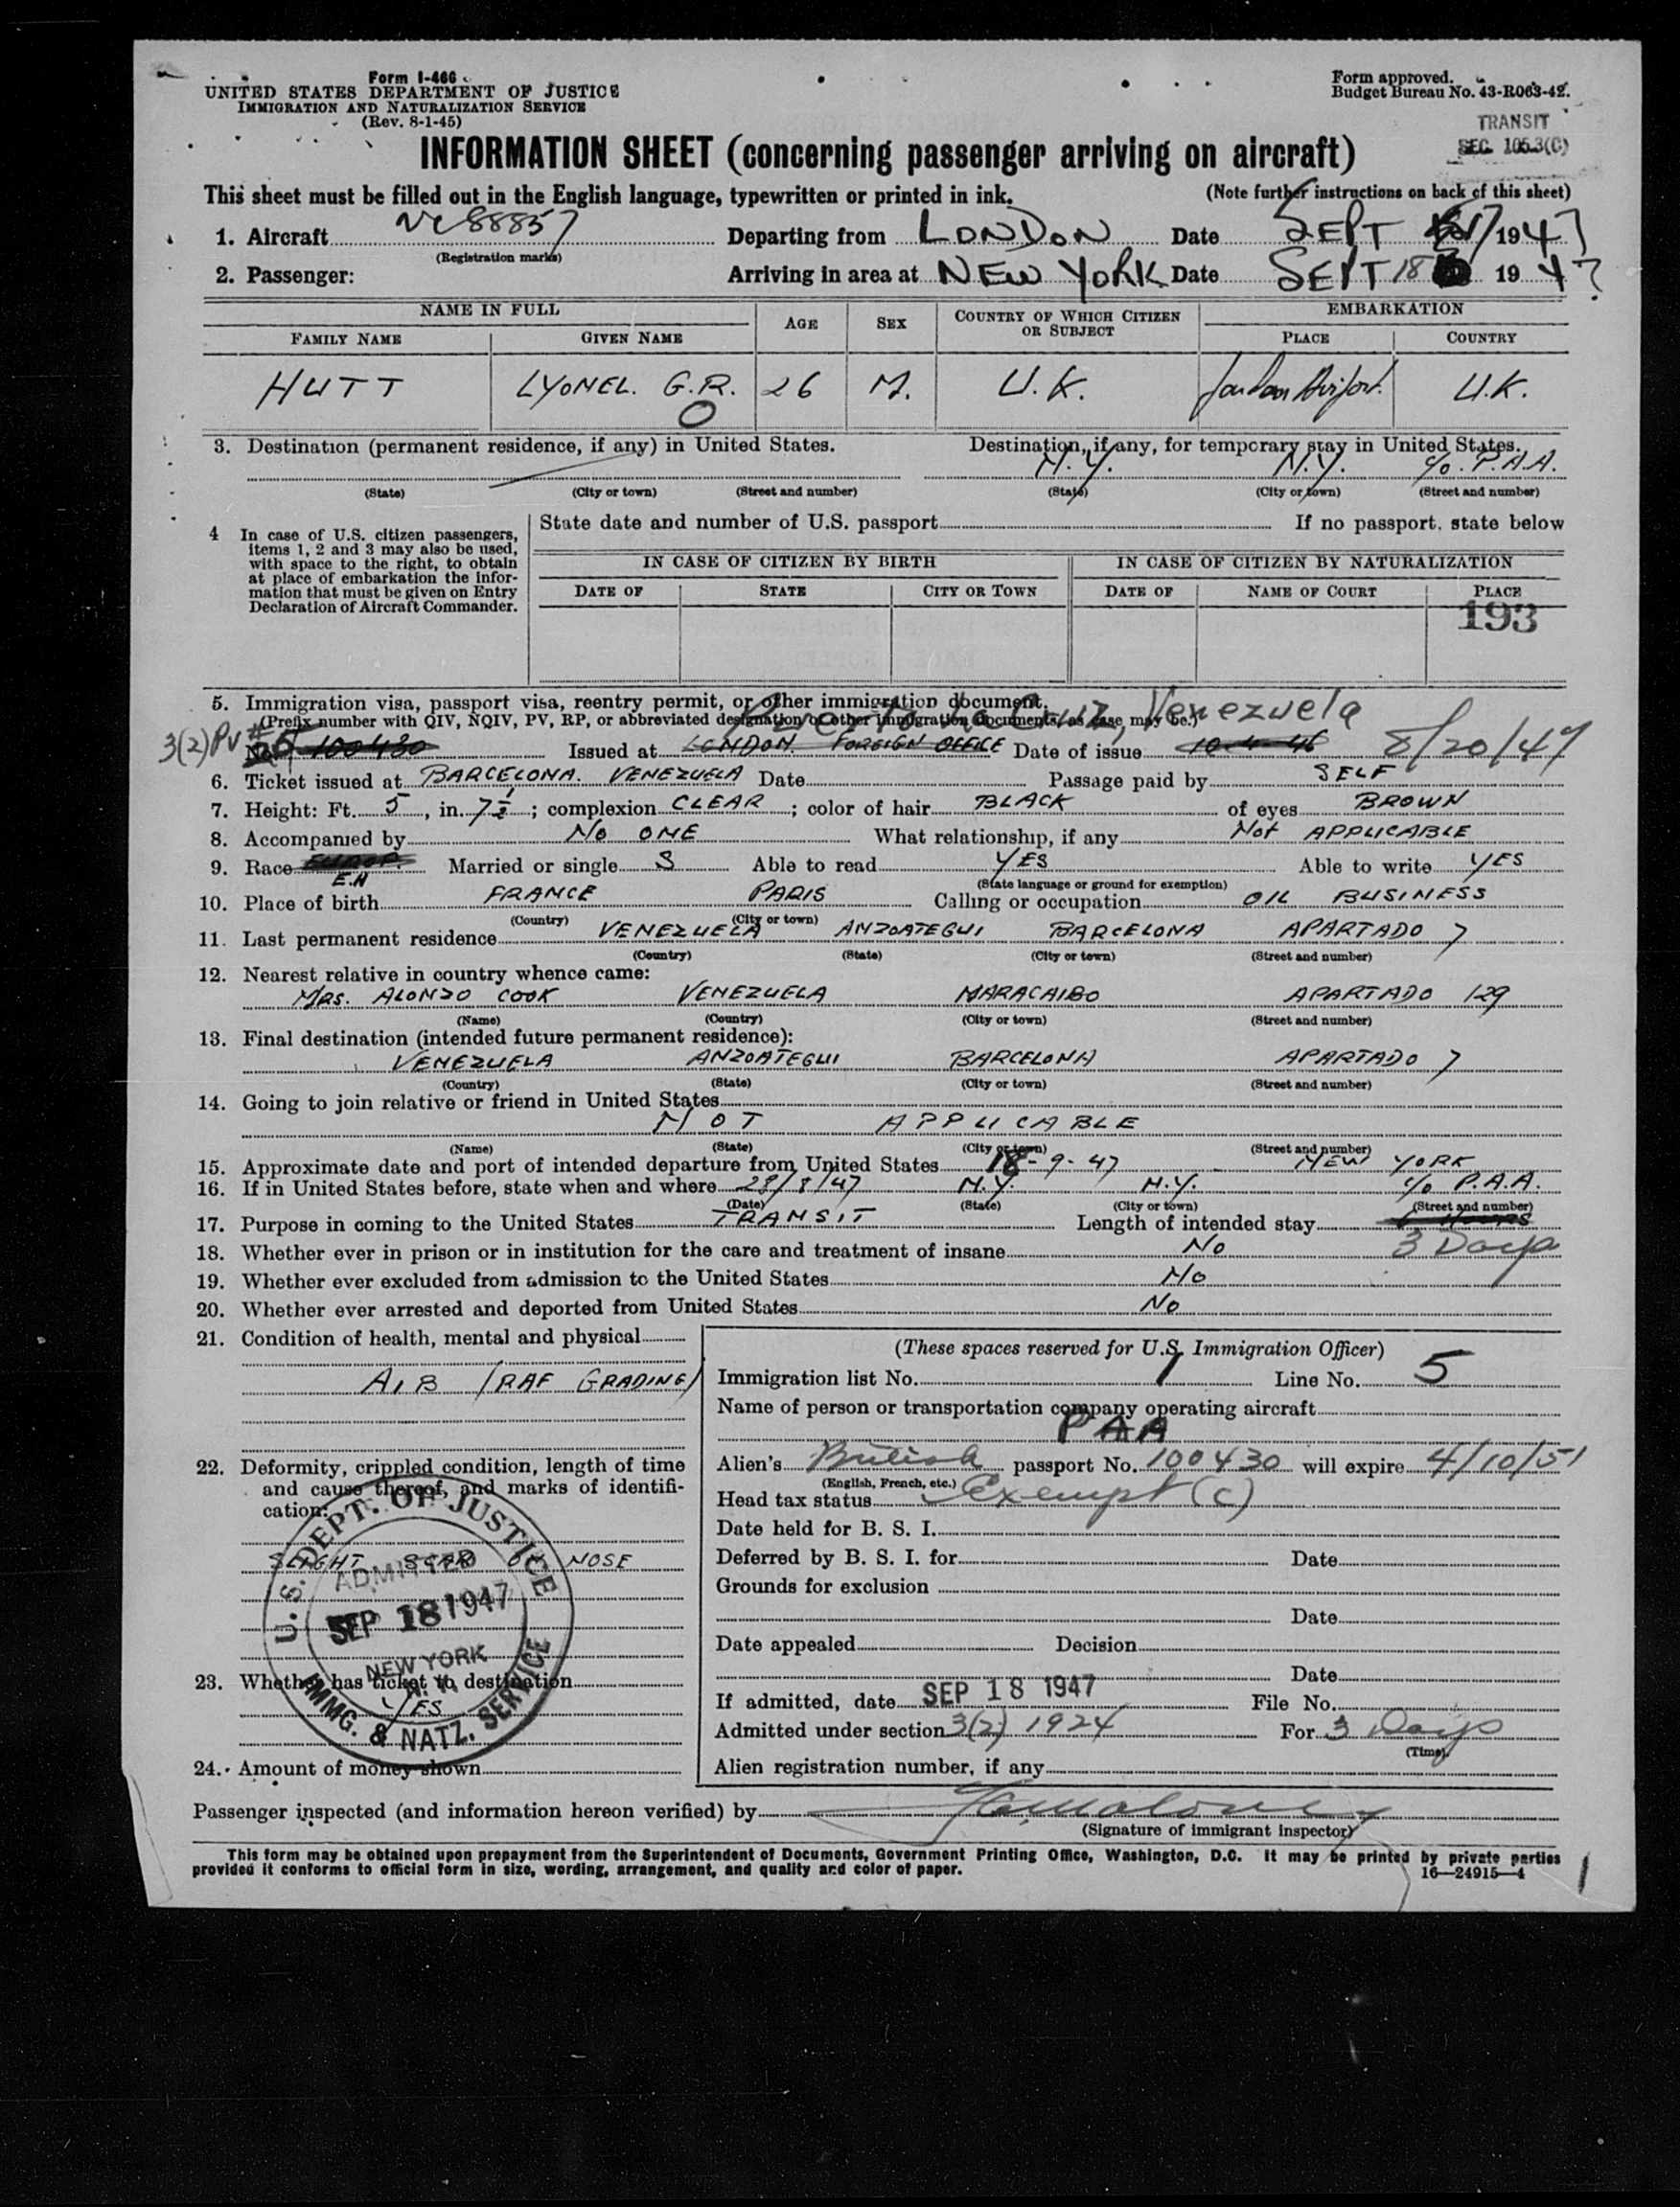 Form I-466
UNITED STATES DEPARTMENT OF JUSTICE
IMMIGRATION AND NATURALIZATION SERVICE
(Rev. 8-1-45)
Form approved.
Budget Bureau No. 43-R063-42.
TRANSIT
SEC. 105.3(C)
INFORMATION SHEET (concerning passenger arriving on aircraft)
This sheet must be filled out in the English language, typewritten or printed in ink. (Note further instructions on back of this sheet)
1. Aircraft NC 88857 Departing from LONDON Date SEPT 17 1947
(Registration marks)
2. Passenger: Arriving in area at NEW YORK Date SEPT 18 1947
NAME IN FULL AGE SEX COUNTRY OF WHICH CITIZEN OR SUBJECT EMBARKATION
FAMILY NAME GIVEN NAME PLACE COUNTRY
HUTT LYONEL. G.R. 26 M. U.K. London Airport. U.K.
O
3. Destination (permanent residence, if any) in United States. Destination, if any, for temporary stay in United States.
N.Y. N.Y. c/o. P.A.A.
(State) (City or town) (Street and number) (State) (City or town) (Street and number)
4 In case of U.S. citizen passengers, items 1, 2 and 3 may also be used, with space to the right, to obtain at place of embarkation the information that must be given on Entry Declaration of Aircraft Commander.
State date and number of U.S. passport If no passport, state below
IN CASE OF CITIZEN BY BIRTH IN CASE OF CITIZEN BY NATURALIZATION
DATE OF STATE CITY OR TOWN DATE OF NAME OF COURT PLACE
193
5. Immigration visa, passport visa, reentry permit, or other immigration document.
(Prefix number with QIV, NQIV, PV, RP, or abbreviated designation of other immigration documents, as case may be.)
Puerto La Cruz, Venezuela
3(2) PV # 100430 Issued at LONDON. FOREIGN OFFICE Date of issue 10-4-46 8/20/47
6. Ticket issued at BARCELONA. VENEZUELA Date Passage paid by SELF
7. Height: Ft. 5, in. 7½; complexion CLEAR; color of hair BLACK of eyes BROWN
8. Accompanied by NO ONE What relationship, if any NOT APPLICABLE
9. Race EUROP. Married or single S Able to read YES Able to write YES
E.H (State language or ground for exemption)
10. Place of birth FRANCE PARIS Calling or occupation OIL BUSINESS
(Country) (City or town)
11. Last permanent residence VENEZUELA ANZOATEGUI BARCELONA APARTADO 7
(Country) (State) (City or town) (Street and number)
12. Nearest relative in country whence came:
MRS. ALONZO COOK VENEZUELA MARACAIBO APARTADO 129
(Name) (Country) (City or town) (Street and number)
13. Final destination (intended future permanent residence):
VENEZUELA ANZOATEGUI BARCELONA APARTADO 7
(Country) (State) (City or town) (Street and number)
14. Going to join relative or friend in United States
NOT APPLICABLE
(Name) (State) (City or town) (Street and number)
15. Approximate date and port of intended departure from United States 18-9-47 NEW YORK
16. If in United States before, state when and where 28/8/47 N.Y. N.Y. c/o P.A.A.
(Date) (State) (City or town) (Street and number)
17. Purpose in coming to the United States TRANSIT Length of intended stay HOURS
18. Whether ever in prison or in institution for the care and treatment of insane No 3 Days
19. Whether ever excluded from admission to the United States No
20. Whether ever arrested and deported from United States No
21. Condition of health, mental and physical
A1B (RAF GRADING)
22. Deformity, crippled condition, length of time and cause thereof, and marks of identification:
SLIGHT SCAR ON NOSE
U.S. DEPT. OF JUSTICE
ADMITTED
SEP 18 1947
NEW YORK
N.Y.
IMMG. & NATZ. SERVICE
23. Whether has ticket to destination
YES
24. Amount of money shown
(These spaces reserved for U.S. Immigration Officer)
Immigration list No. 1 Line No. 5
Name of person or transportation company operating aircraft
PAA
Alien's British passport No. 100430 will expire 4/10/51
(English, French, etc.)
Head tax status Exempt (C)
Date held for B. S. I.
Deferred by B. S. I. for Date
Grounds for exclusion
Date
Date appealed Decision
Date
If admitted, date SEP 18 1947 File No.
Admitted under section 3(2) 1924 For 3 Days
(Time)
Alien registration number, if any
Passenger inspected (and information hereon verified) by
(Signature of immigrant inspector)
This form may be obtained upon prepayment from the Superintendent of Documents, Government Printing Office, Washington, D.C. It may be printed by private parties
provided it conforms to official form in size, wording, arrangement, and quality and color of paper. 16—24915—4
1